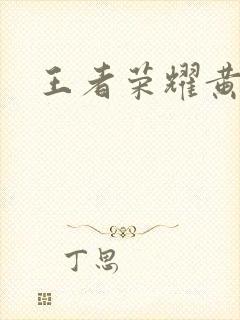 王者荣耀黄
丁思